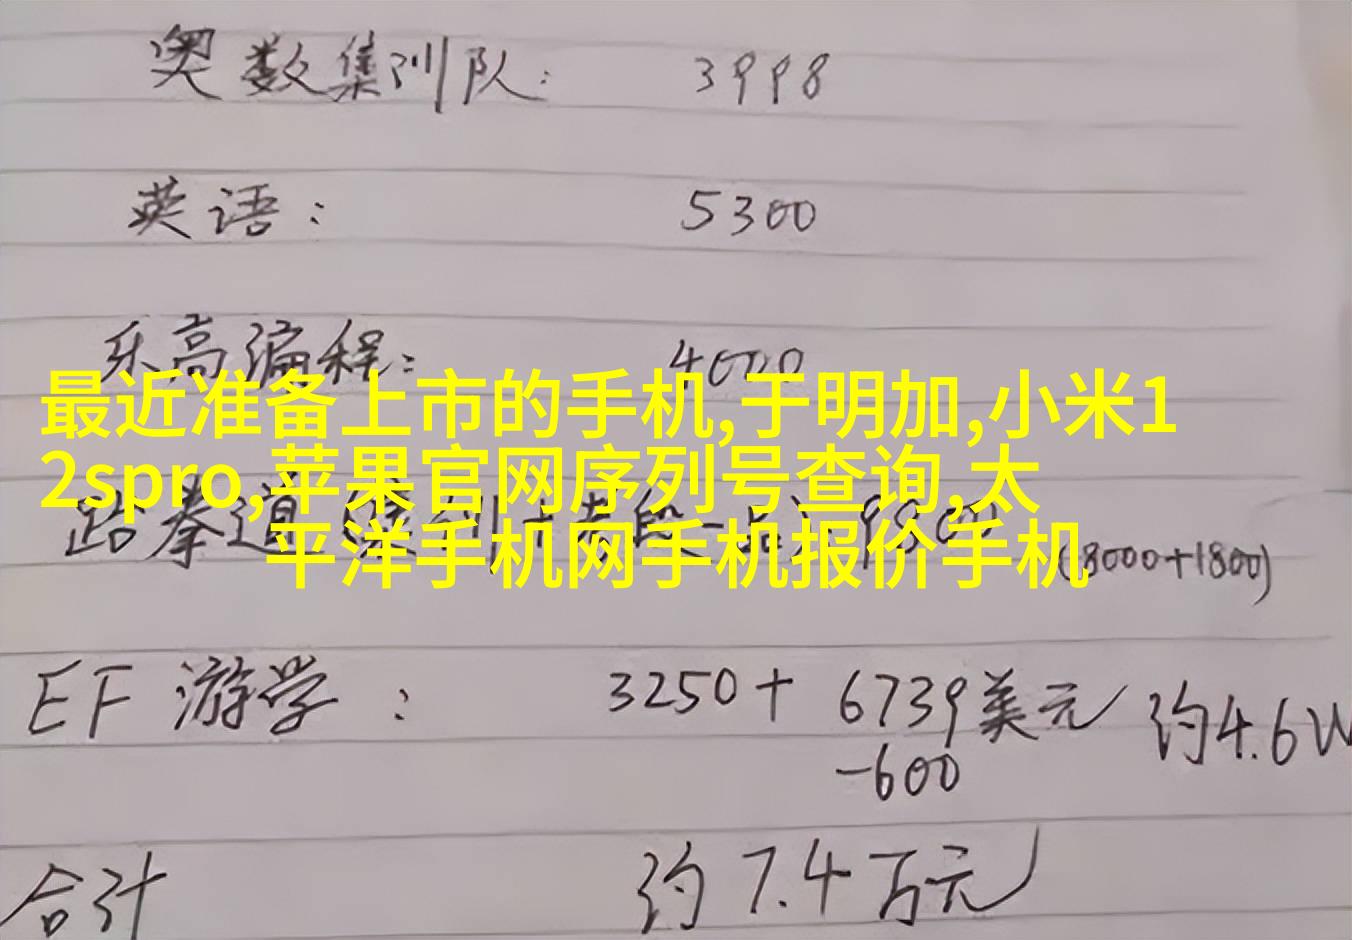 奥数集训队: 3998
英语: 5300
乐高编程: 4000
最近准备上市的手机,于明加,小米1
2spro,苹果官网序列号查询,太
平洋手机网手机报价手机
跆拳道 9800 (8000+1800)
EF 游学: 3250+ 6739美元 约4.6W
-600
合计 约7.4万元